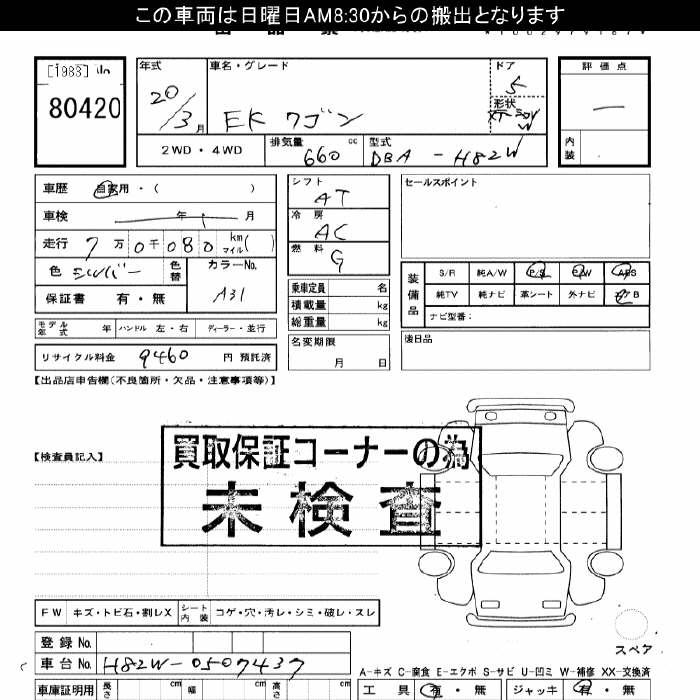 この車両は日曜日AM8:30からの搬出となります
[1983]
80420
年式 車名・グレード ドア
20/3月 EK ワゴン 5
形状
2WD・4WD 排気量 660 cc 型式 DBA-H82W
評価点
内装
車歴 自家用・( )
車検 年 月
走行 7万0千080 km マイル( )
色 シルバー 色替 カラーNo. A31
保証書 有・無
モデル年式 年 ハンドル 左・右 ディーラー・並行
リサイクル料金 9460 円 預託済
シフト AT
冷房 AC
燃料 G
乗車定員 名
積載量 kg
総重量 kg
名変期限
月 日
セールスポイント
装備品 S/R 純A/W P/S P/W ABS
純TV 純ナビ 革シート 外ナビ エアB
ナビ型番:
後日品
【出品店申告欄(不良箇所・欠品・注意事項等)】
【検査員記入】
買取保証コーナーの為
未検査
FW キズ・トビ石・割レX シート内装 コゲ・穴・汚レ・シミ・破レ・スレ
スペア
登録 No.
車台 No. H82W-0507437
A-キズ C-腐食 E-エクボ S-サビ U-凹ミ W-補修 XX-交換済
車庫証明用 長さ cm 幅 cm 高さ cm
工具 有・無 ジャッキ 有・無